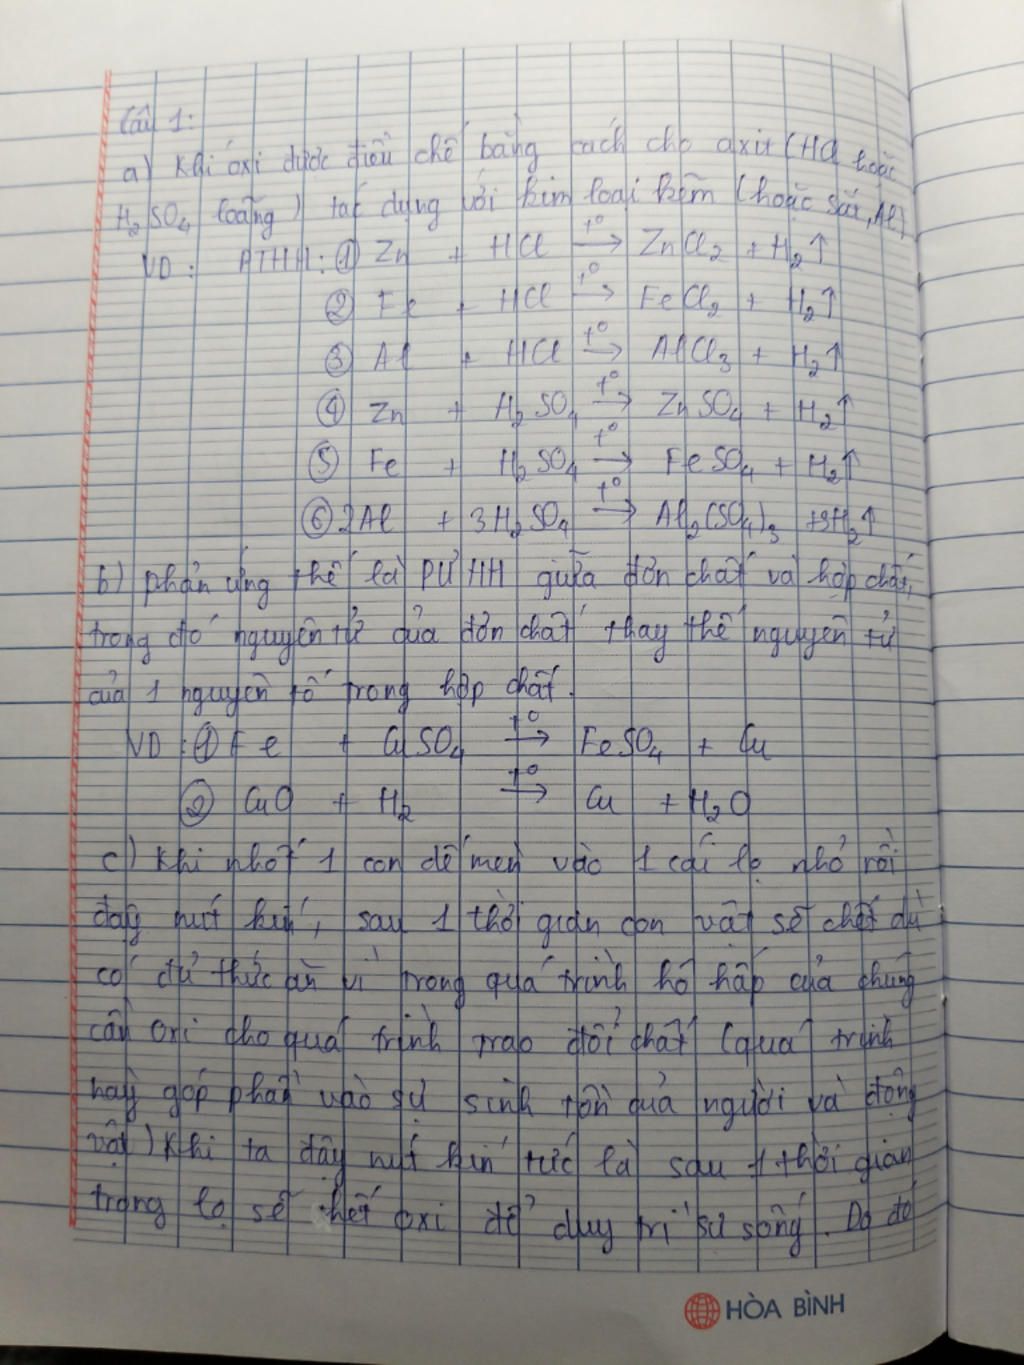 Câu 1:
a) Khí oxi được điều chế bằng cách cho axit (HCl hoặc
H₂SO₄ loãng) tác dụng với kim loại kẽm (hoặc sắt, Al)
VD: PTHH: ① Zn + HCl →t° ZnCl₂ + H₂↑
② Fe + HCl →t° FeCl₂ + H₂↑
③ Al + HCl →t° AlCl₃ + H₂↑
④ Zn + H₂SO₄ →t° ZnSO₄ + H₂↑
⑤ Fe + H₂SO₄ →t° FeSO₄ + H₂↑
⑥ 2Al + 3H₂SO₄ →t° Al₂(SO₄)₃ + 3H₂↑
b) phản ứng thế là PƯHH giữa đơn chất và hợp chất,
trong đó nguyên tử của đơn chất thay thế nguyên tử
của 1 nguyên tố trong hợp chất.
VD: ① Fe + CuSO₄ →t° FeSO₄ + Cu
② CuO + H₂ →t° Cu + H₂O
c) Khi nhốt 1 con dế mèn vào 1 cái lọ nhỏ rồi
đậy nút kín, sau 1 thời gian con vật sẽ chết dù
có đủ thức ăn vì trong quá trình hô hấp của chúng
cần oxi cho quá trình trao đổi chất (quá trình
này góp phần vào sự sinh tồn của người và động
vật) Khi ta đậy nút kín tức là sau 1 thời gian
trong lọ sẽ hết oxi để duy trì sự sống. Do đó
HÒA BÌNH